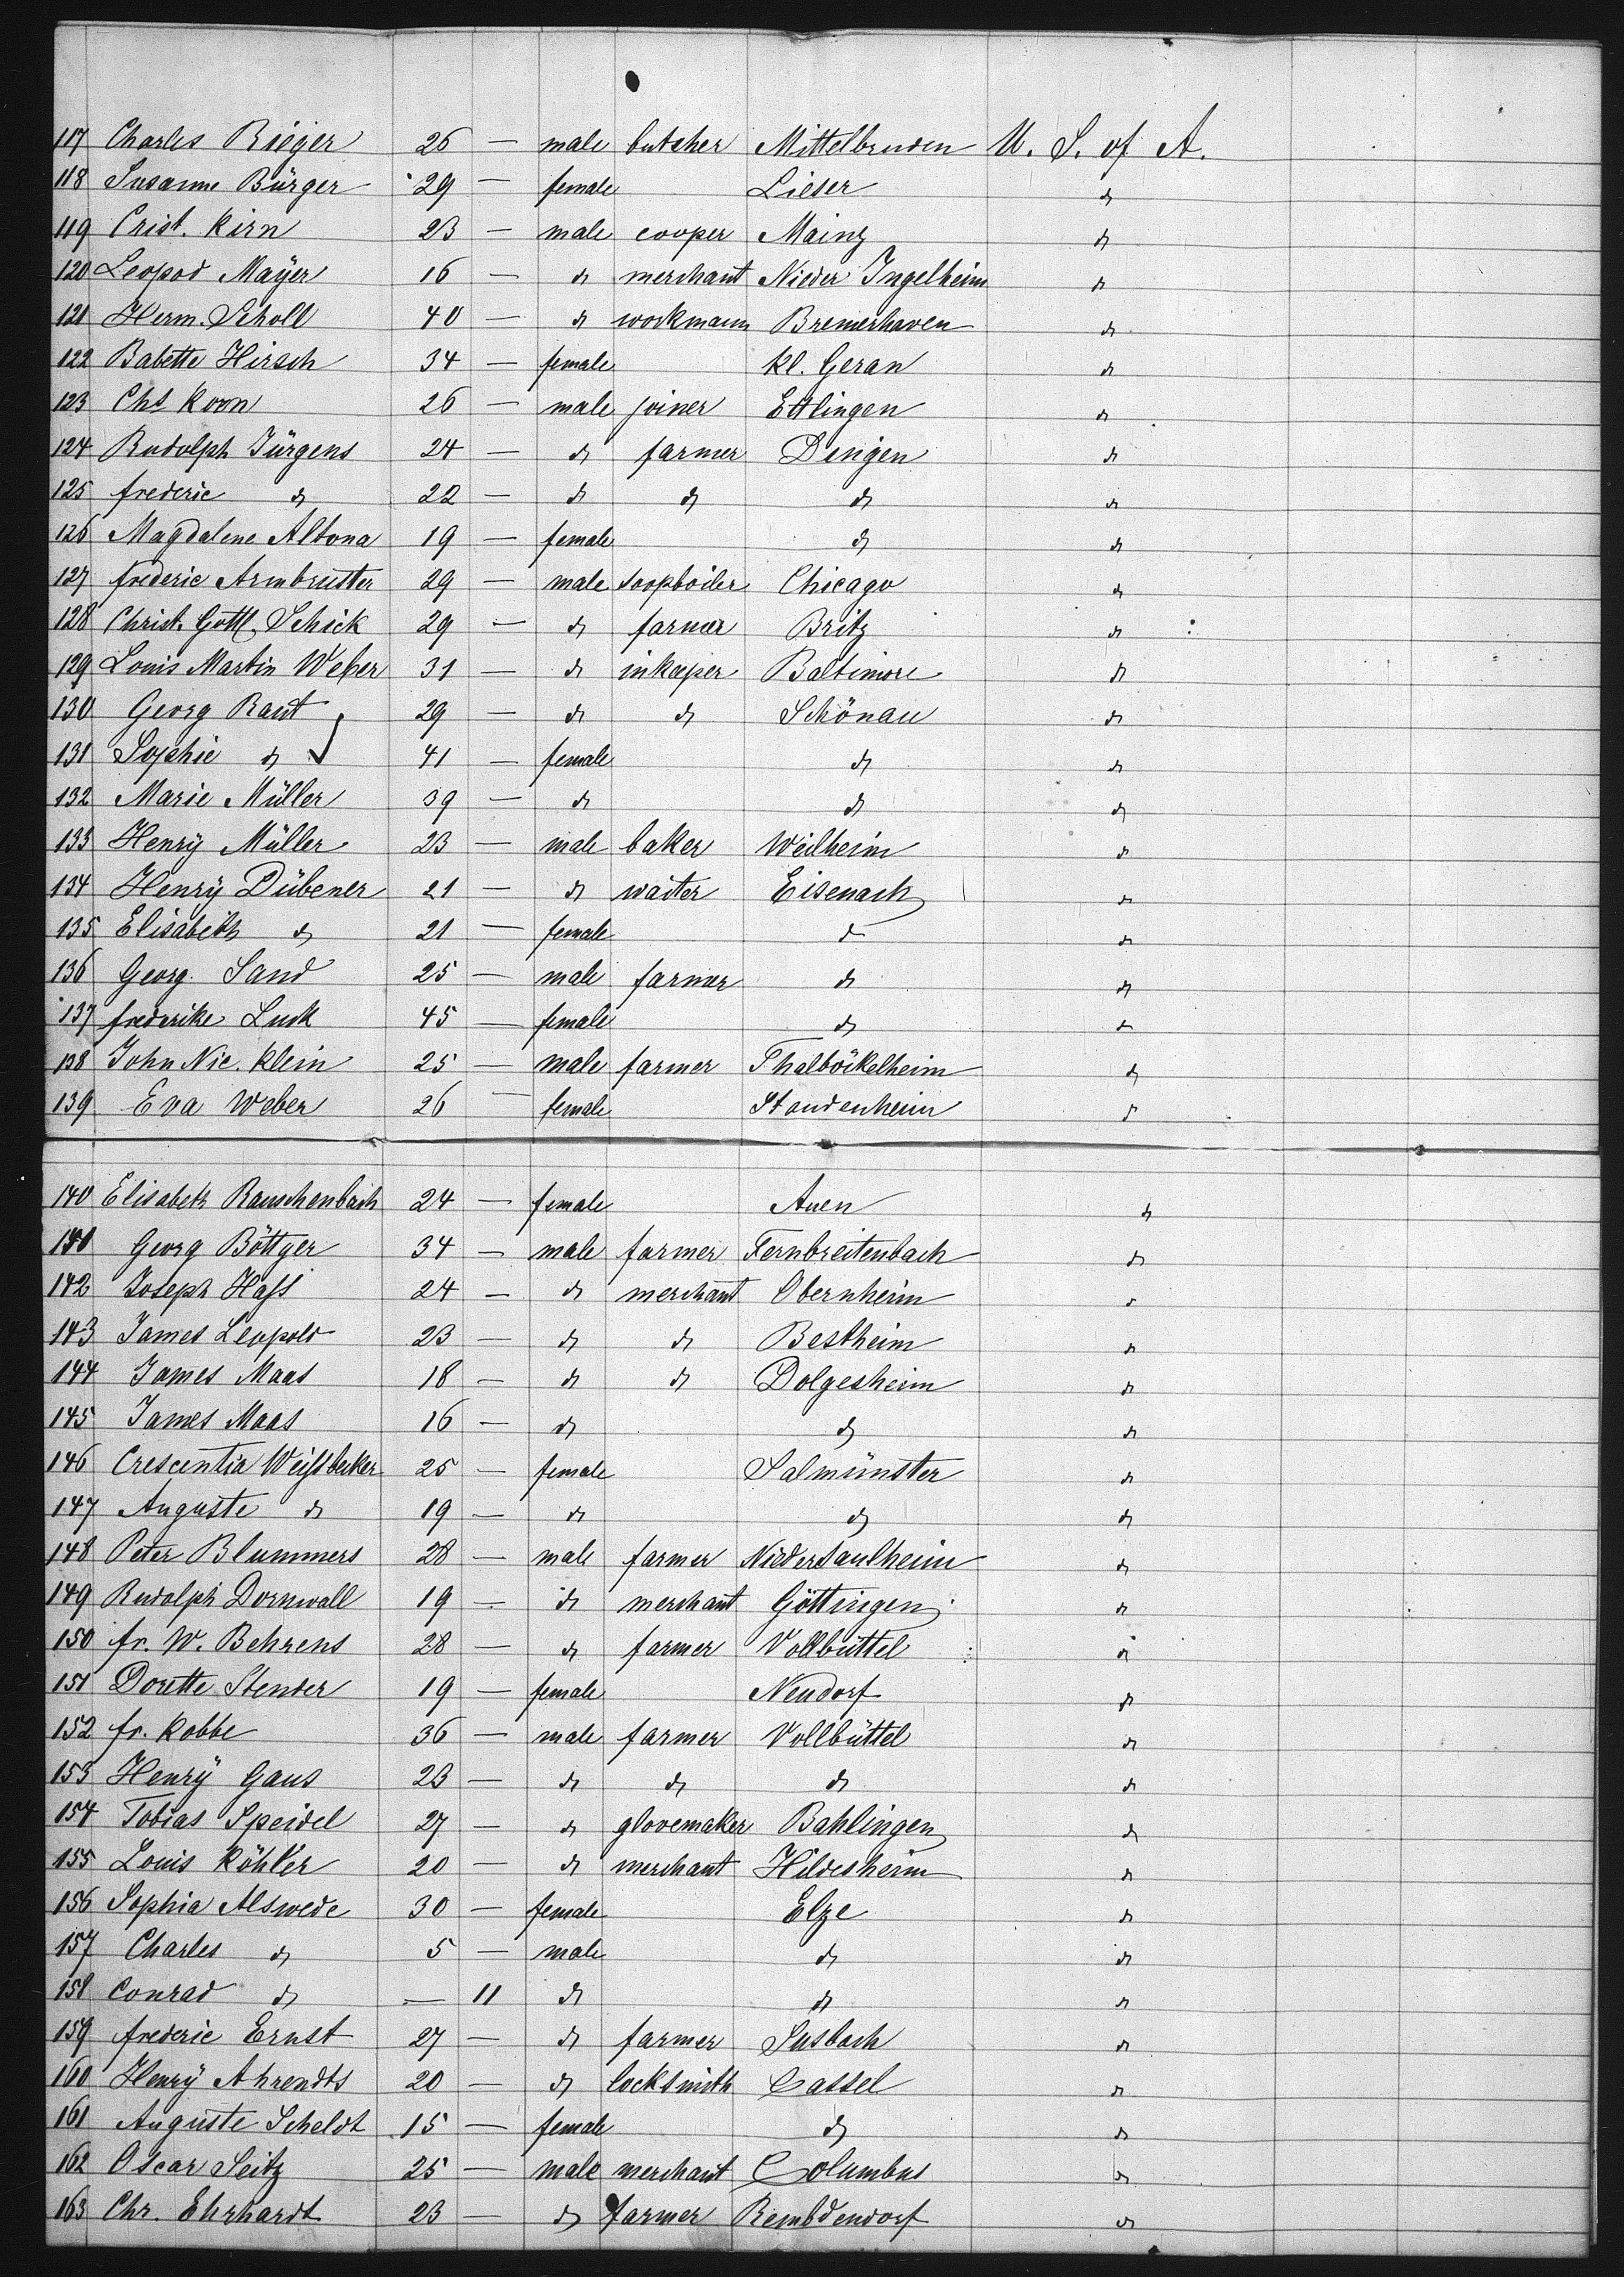 117 Charles Rieger 26 — male butcher Mittelbruden U. S. of A.
118 Susanne Bürger 29 — female Lieser do
119 Crist. Kirn 23 — male cooper Mainz do
120 Leopod Mayer 16 — do merchant Nieder Ingelheim do
121 Herm. Scholl 40 — do workmann Bremerhaven do
122 Babette Hirsch 34 — female kl. Geran do
123 Chs Koon 26 — male joiner Ettlingen do
124 Rudolph Jürgens 24 — do farmer Dingen do
125 frederic do 22 — do do do do
126 Magdalene Altona 19 — female do do
127 frederic Armbruster 29 — male soopboiler Chicago do
128 Christ. Gottl. Schick 29 — do farmer Britz do
129 Louis Martin Weber 31 — do inkeeper Baltimore do
130 Georg Raut 29 — do do Schönau do
131 Sophie do 41 — female do do
132 Marie Müller 39 — do do do
133 Henry Müller 23 — male baker Weilheim do
134 Henry Dübener 21 — do waiter Eisenach do
135 Elisabeth do 21 — female do do
136 Georg Sand 25 — male farmer do do
137 frederike Luck 45 — female do do
138 John Nic. Klein 25 — male farmer Thalböckelheim do
139 Eva Weber 26 — female Staudenheim do
140 Elisabeth Rauschenbach 24 — female Auen do
141 Georg Böttger 34 — male farmer Fernbreitenbach do
142 Joseph Hass 24 — do merchant Obernheim do
143 James Leopold 23 — do do Bestheim do
144 James Maas 18 — do do Dolgesheim do
145 James Maas 16 — do do do
146 Crescentia Weissbecker 25 — female Salmünster do
147 Auguste do 19 — do do do
148 Peter Blummers 28 — male farmer Niedersaulheim do
149 Rudolph Dornwall 19 — do merchant Göttingen do
150 fr. W. Behrens 28 — do farmer Vollbüttel do
151 Dorette Stender 19 — female Neudorf do
152 fr. Kobbe 36 — male farmer Vollbüttel do
153 Henry Gaus 23 — do do do do
154 Tobias Speidel 27 — do glovemaker Bahlingen do
155 Louis Köhler 20 — do merchant Hildesheim do
156 Sophia Alswede 30 — female Elze do
157 Charles do 5 — male do do
158 Conrad do — 11 do do do
159 frederic Ernst 27 — do farmer Susbach do
160 Henry Ahrendts 20 — do locksmith Cassel do
161 Auguste Scheldt 15 — female do do
162 Oscar Seitz 25 — male merchant Columbus do
163 Chr. Ehrhardt 23 — do farmer Rembdendorf do